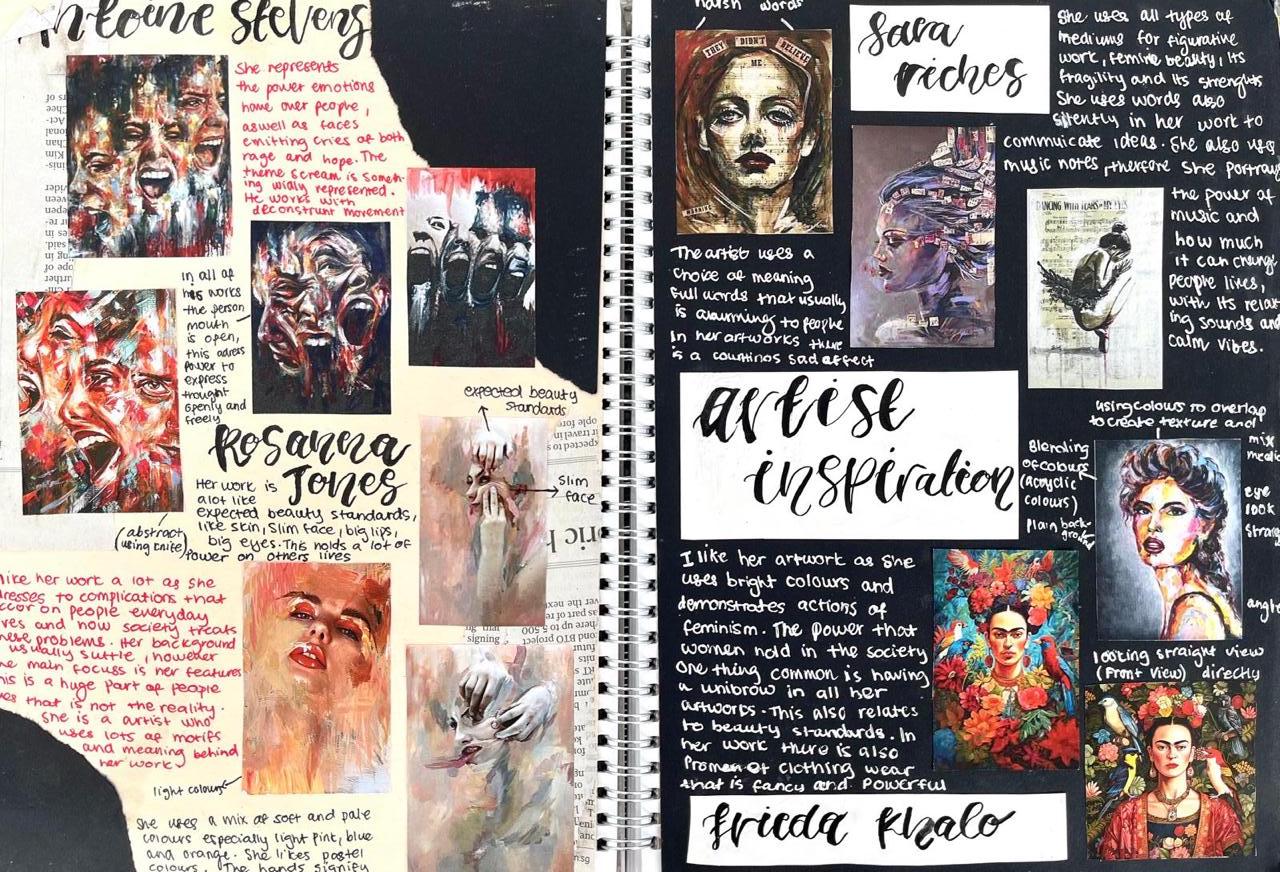 Antoine Stevens
She represents
the power emotions
have over people,
aswell as faces
emitting cries of both
rage and hope. The
theme scream is someth-
ing widly represented.
He works with
deconstrunt movement
In all of
his works
the person
mouth
is open,
this adress
power to
express
trought
openly and
freely
(abstract)
(using knife)
Rosanna
Jones
Her work is
alot like
expected beauty standards,
like skin, Slim face, big lips,
big eyes. This holds a lot of
power on others lives
expected beauty
standards
Slim
face
like her work a lot as she
dresses to complications that
ccor on people everyday
ves and how society treats
hese problems. Her background
usually suttle, however
he main focuss is her features
his is a huge part of people
ves that is not the reality.
She is a artist who
uses lots of motifs
and meaning behind
her work
light colours
She uses a mix of soft and pale
colours especially light pint, blue
and orange. She likes pastel
colours. The hands signify
harsh words
THEY DIDN'T BELIEVE
ME
Sara
riches
She uses all types of
mediums for figurative
work, feminie beauty, its
fragility and its strenghts
She uses words also
silently in her work to
commuicate ideas. She also uses
music notes, therfore she portrays
the power of
music and
how much
it can change
people lives,
with its relax-
ing sounds and
calm vibes.
DANCING WITH TEARS IN MY EYES
The artist uses a
choice of meaning
full words that usually
is
to people
In her artworks there
is a
sad affect
artist
inspiration
using colours to overlap
to create texture and
mix
media
Blending
of colours
(acyclic
colours)
plain back-
ground
eye
look
straig
angle
I like her artwork as she
uses bright colours and
demonstrates actions of
feminism. The power that
women hold in the society
One thing common is having
a unibrow in all her
artworks. This also relates
to beauty standards. In
her work there is also
clothing wear
that is fancy and powerful
looking straight view
(Front View) directly
frieda Khalo